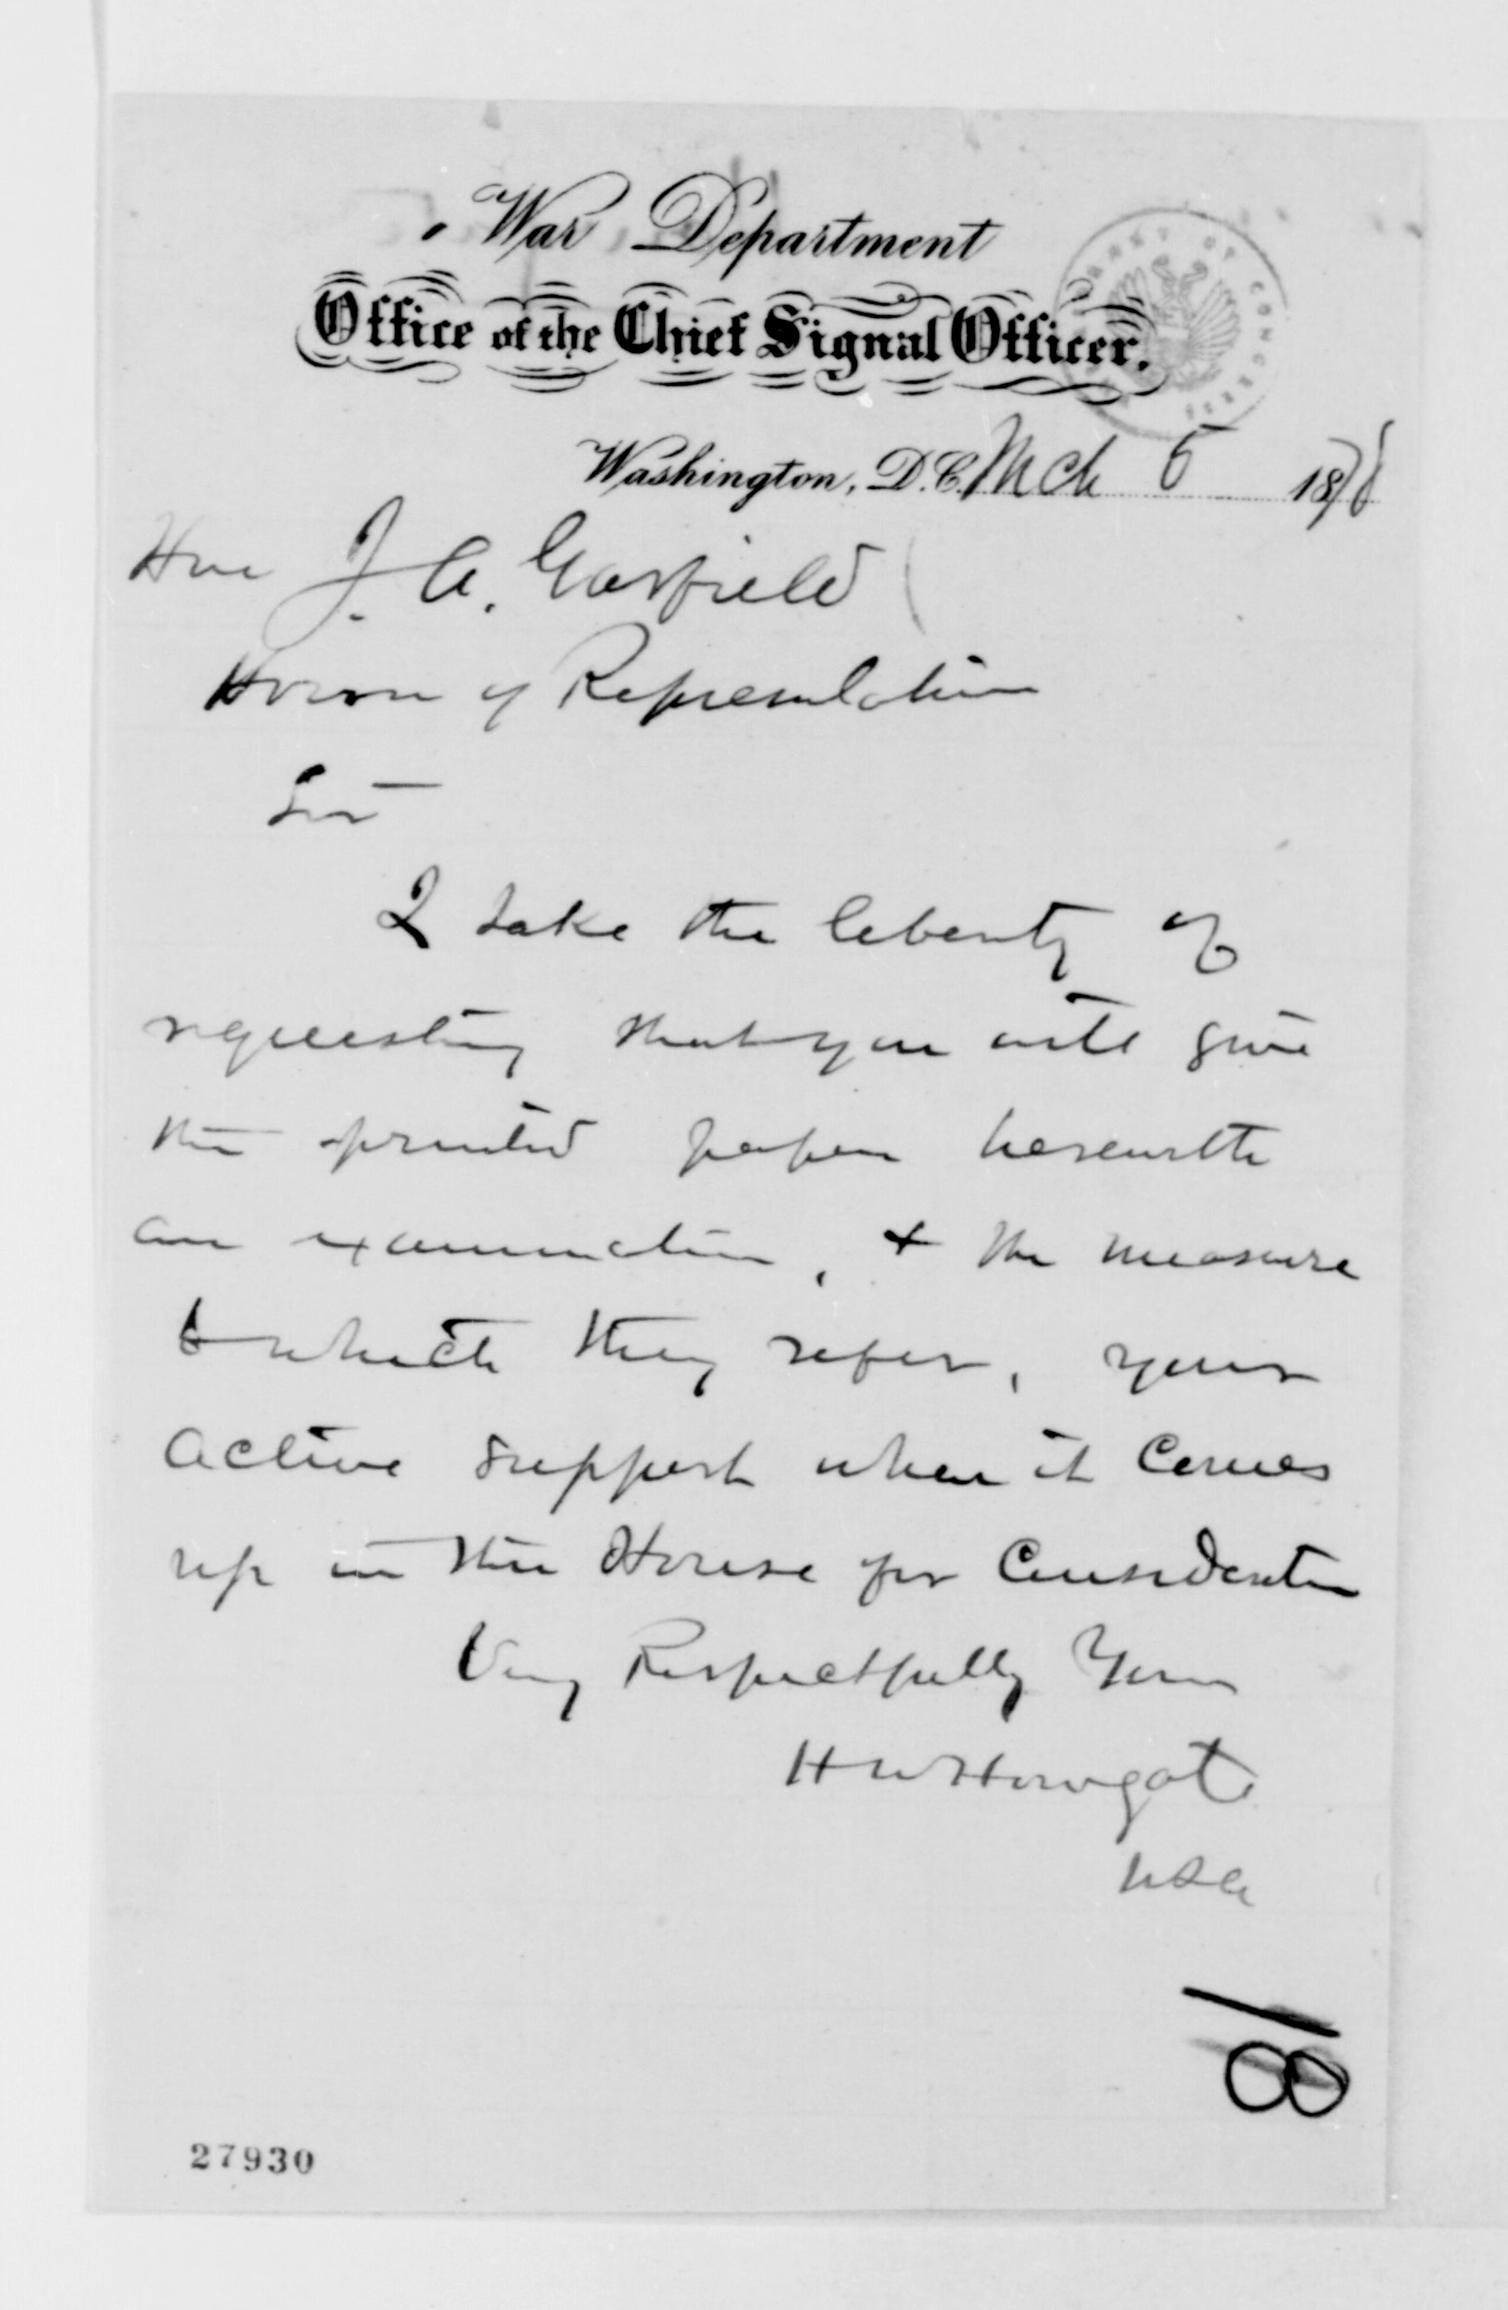 War Department
Office of the Chief Signal Officer.
Washington, D.C. Mch 5 1878
Hon J. A. Garfield
House of Representatives
Sir
I take the liberty of
requesting that you will give
the printed papers herewith
an examination, & the measure
to which they refer, your
active support when it comes
up in the House for Consideration
Very Respectfully Yours
H W Howgate
USA
LIBRARY OF CONGRESS
27930